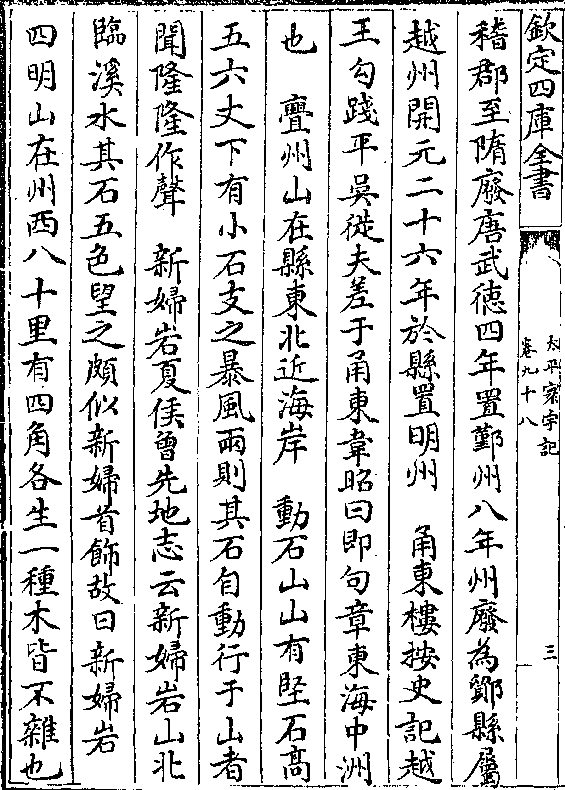 欽定四庫全書
太平寰宇記
卷九十八
三
稽郡至隋廢唐武徳四年置鄞州八年州廢為鄮縣屬
越州開元二十六年於縣置明州　甬東樓按史記越
王勾踐平吳徙夫差于甬東韋昭曰即句章東海中洲
也　亹州山在縣東北近海岸　動石山山有堅石高
五六丈下有小石支之暴風雨則其石自動行于山者
聞隆隆作聲　新婦岩夏侯曾先地志云新婦岩山北
臨溪水其石五色望之頗似新婦首飾故曰新婦岩
四明山在州西八十里有四角各生一種木皆不雜也